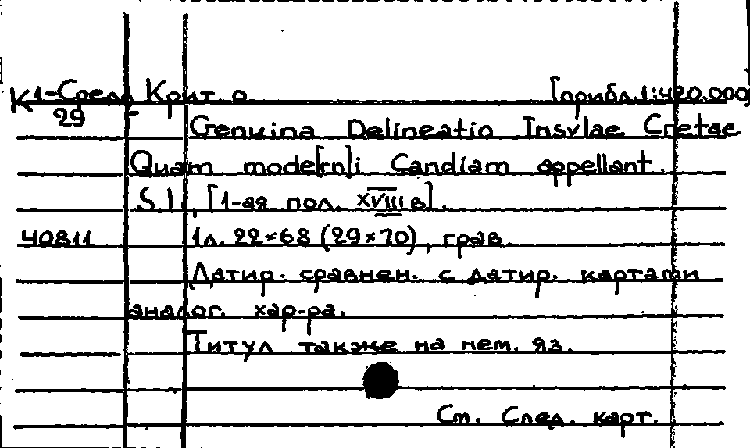 К 1-Сред Крит о [прибл. 1:420.000
29
Genuina Delineatio Insvlae Cretae
Quam mode[rn]i Candiam appellant.
S.l., [1-ая пол. XVIII в].
40811 1л. 22×68 (29×70), грав.
Датир. сравнен. с датир. картами
аналог. хар-ра.
Титул также на нем. яз.
См. След. карт.